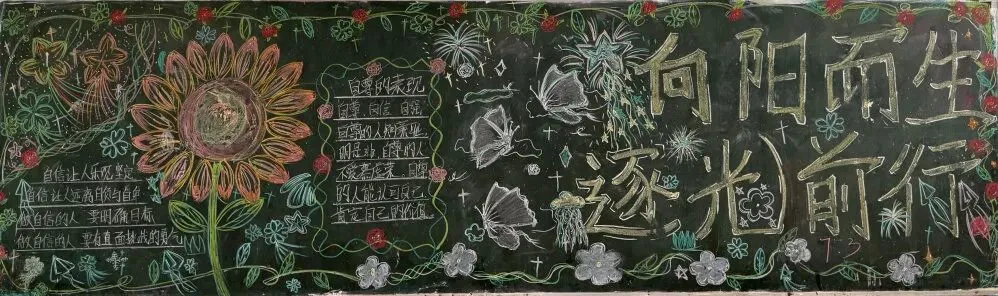 自信让人乐观坚定
自信让人远离自负与自卑
做自信的人 要明确目标
做自信的人 要有直面挑战的勇气
自尊的表现
自尊 自信 自强
自尊的人
明是非 自尊的人
自尊
的人能认可自己
肯定自己的价值
向阳而生
逐光前行
7.3